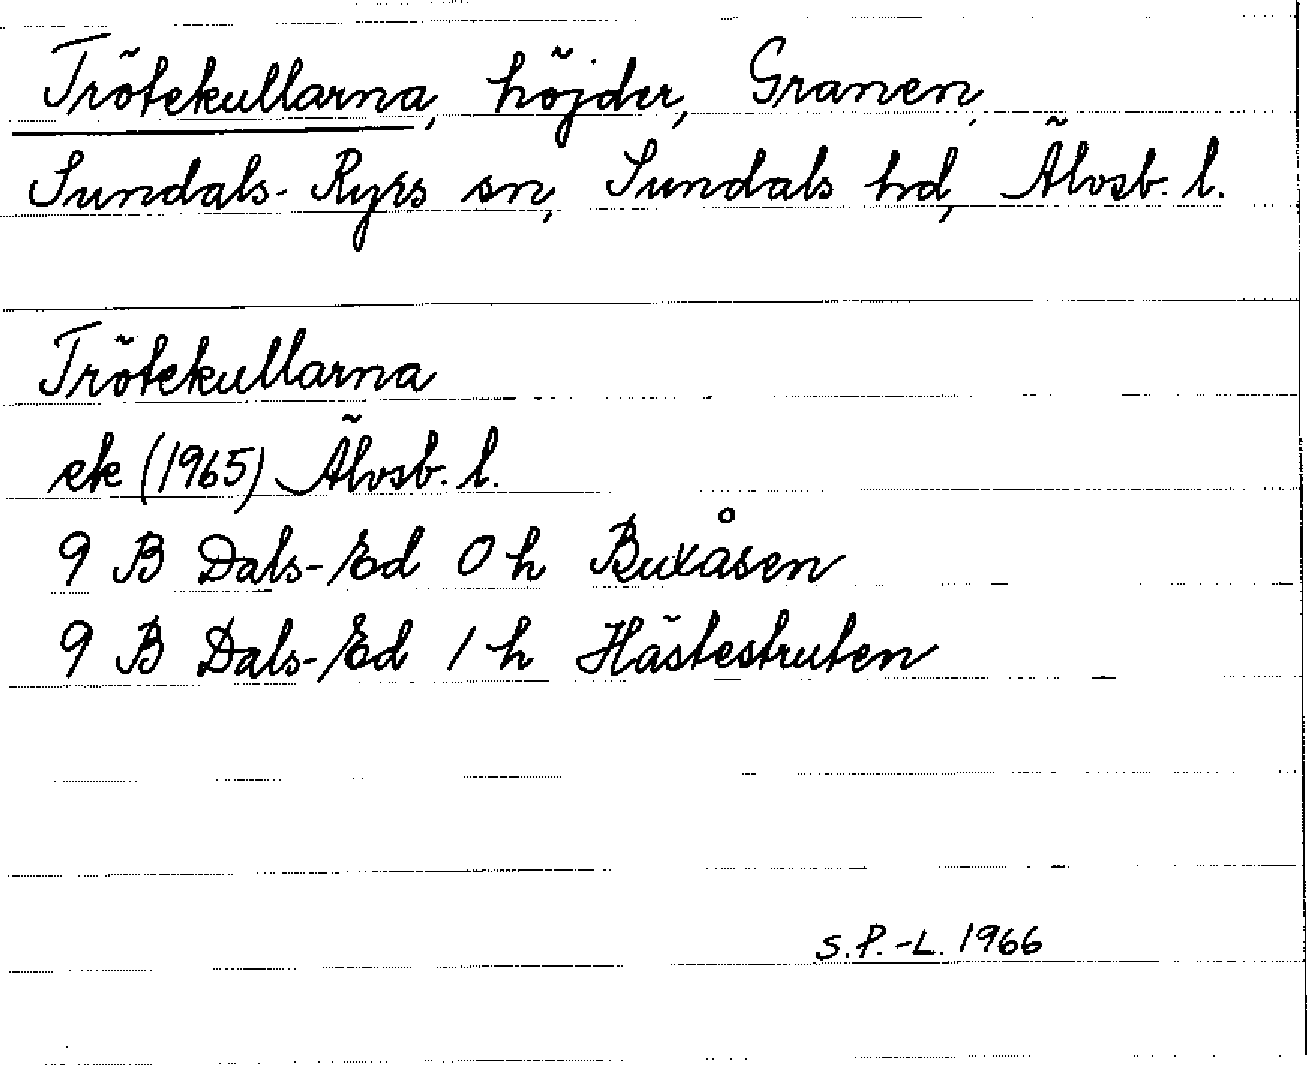 Trötekullarna, höjder, Granen,
Sundals-Ryrs sn, Sundals hd, Älvsb. l.
Trötekullarna
ek (1965) Älvsb. l.
9 B Dals-Ed 0 h Buxåsen
9 B Dals-Ed 1 h Hästestruten
S.P.-L. 1966